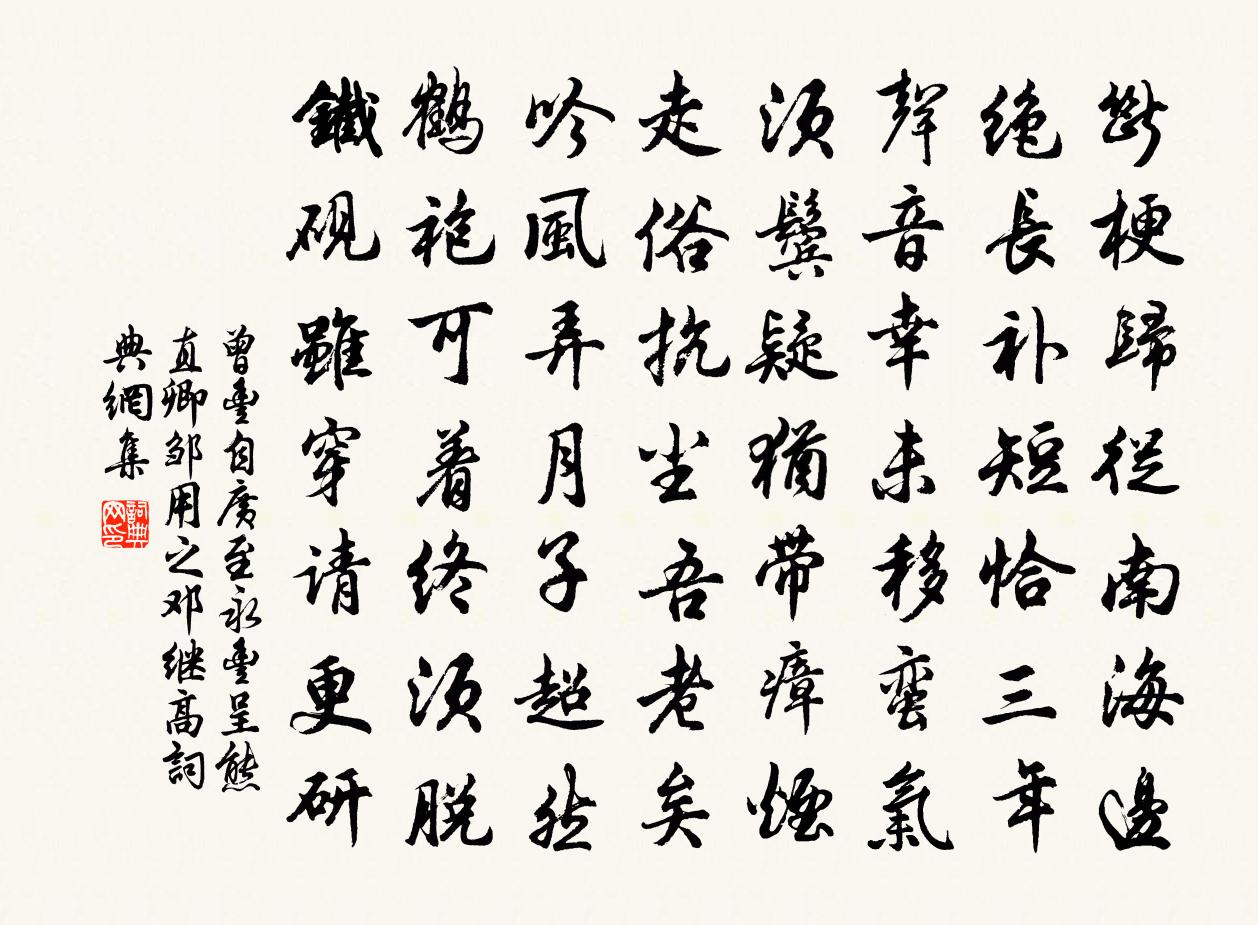 斷梗歸從南海邊
绝長补短恰三年
聲音幸未移蛮氣
須鬓疑猶带瘴煙
走俗抗尘吾老矣
吟風弄月子超然
鶴袍可着终須脱
鐵硯雖穿请更研
曾豐自廣至永豐呈熊
直卿邹用之邓继高詞
典網集
詞典网印